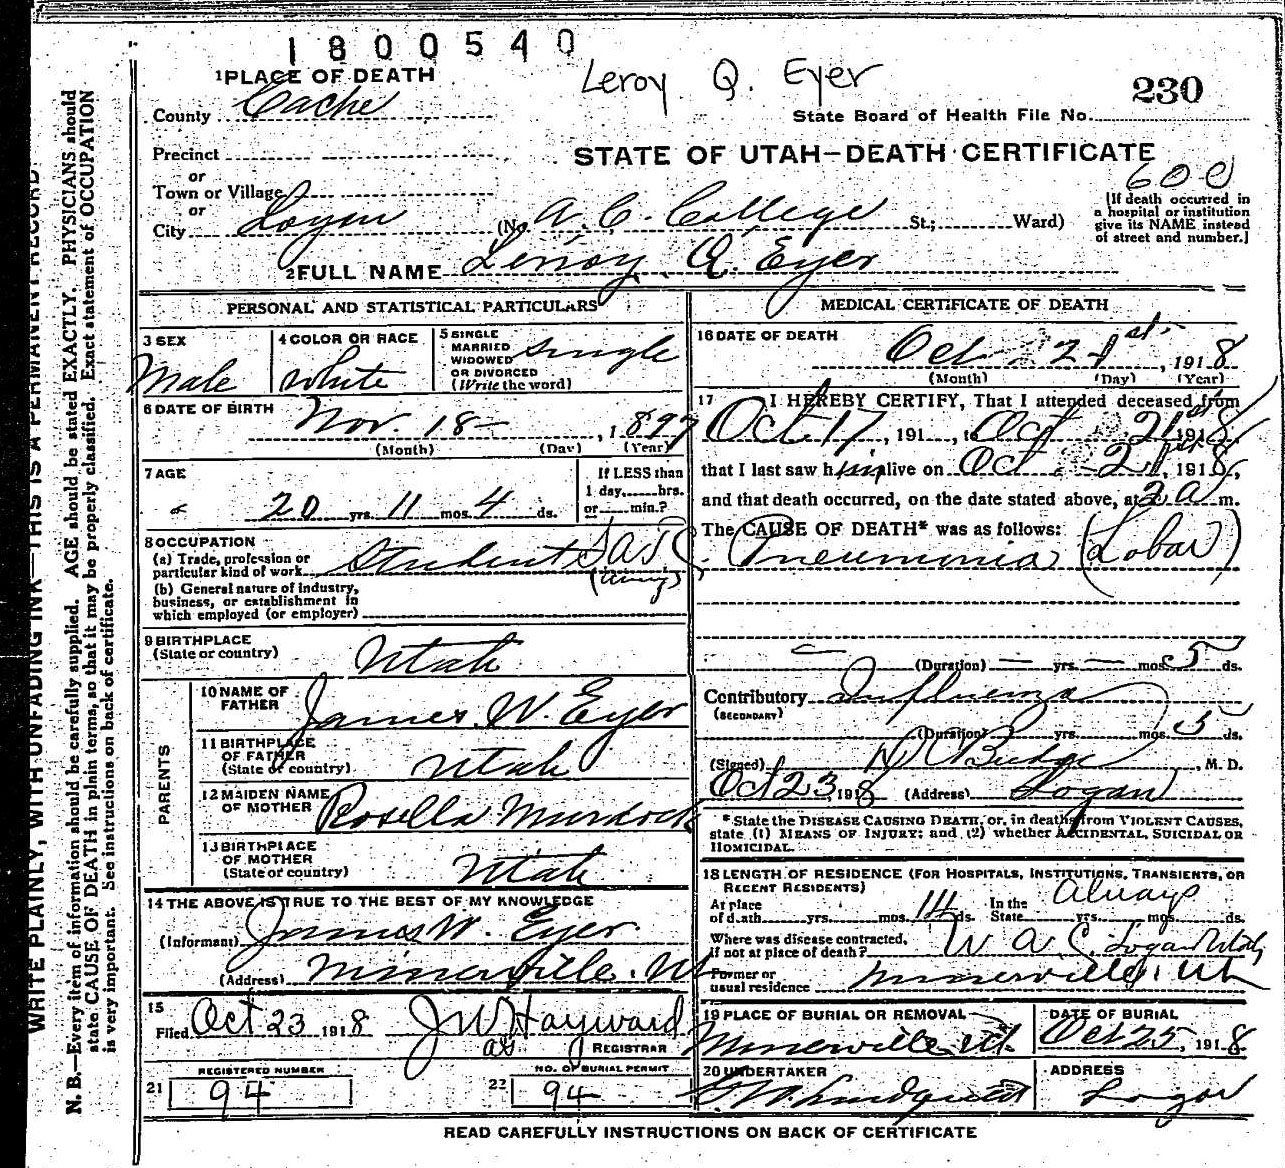 1800540
Leroy Q. Eyer
230
1 PLACE OF DEATH
County Cache
State Board of Health File No.
Precinct
or
STATE OF UTAH—DEATH CERTIFICATE
600
Town or Village
or
City Logan (No. A. C. College St.; Ward)
[If death occurred in
a hospital or institution
give its NAME instead
of street and number.]
2 FULL NAME Leroy Q. Eyer
PERSONAL AND STATISTICAL PARTICULARS
3 SEX
Male
4 COLOR OR RACE
White
5 SINGLE
MARRIED
WIDOWED
OR DIVORCED
(Write the word)
single
6 DATE OF BIRTH
Nov. 18 , 1897
(Month) (Day) (Year)
7 AGE
20 yrs. 11 mos. 4 ds.
If LESS than
1 day, hrs.
or min.?
8 OCCUPATION
(a) Trade, profession or
particular kind of work Student
(Army)
(b) General nature of industry,
business, or establishment in
which employed (or employer)
9 BIRTHPLACE
(State or country)
Utah
PARENTS
10 NAME OF
FATHER
James W. Eyer
11 BIRTHPLACE
OF FATHER
(State or country)
Utah
12 MAIDEN NAME
OF MOTHER
Rosella Murdock
13 BIRTHPLACE
OF MOTHER
(State or country)
Utah
14 THE ABOVE IS TRUE TO THE BEST OF MY KNOWLEDGE
(Informant) James W. Eyer
(Address) Minersville. Ut
15
Filed Oct 23 1918 J W Hayward
REGISTRAR
REGISTERED NUMBER
21 94
NO. OF BURIAL PERMIT
22 94
MEDICAL CERTIFICATE OF DEATH
16 DATE OF DEATH
Oct 21st , 1918
(Month) (Day) (Year)
17 I HEREBY CERTIFY, That I attended deceased from
Oct 17, 191 , to Oct 21st 1918,
that I last saw him alive on Oct 21st, 1918,
and that death occurred, on the date stated above, at 2 a m.
The CAUSE OF DEATH* was as follows:
Pneumonia (Lobar)
(Duration) — yrs. — mos. 5 ds.
Contributory Influenza
(SECONDARY)
(Duration) yrs. mos. 5 ds.
(Signed) D C Budge, M. D.
Oct 23, 1918 (Address) Logan
* State the DISEASE CAUSING DEATH, or, in deaths from VIOLENT CAUSES,
state (1) MEANS OF INJURY; and (2) whether ACCIDENTAL, SUICIDAL OR
HOMICIDAL.
18 LENGTH OF RESIDENCE (FOR HOSPITALS, INSTITUTIONS, TRANSIENTS, OR
RECENT RESIDENTS)
At place
of death yrs. mos. 14 ds.
In the
State yrs. mos. ds.
Always
Where was disease contracted,
if not at place of death? U A C, Logan Utah
Former or
usual residence Minersville, Ut
19 PLACE OF BURIAL OR REMOVAL
Minersville Ut.
DATE OF BURIAL
Oct 25, 1918
20 UNDERTAKER
Lindquist
ADDRESS
Logan
READ CAREFULLY INSTRUCTIONS ON BACK OF CERTIFICATE
WRITE PLAINLY, WITH UNFADING INK—THIS IS A PERMANENT RECORD
N. B.—Every item of information should be carefully supplied. AGE should be stated EXACTLY. PHYSICIANS should
state CAUSE OF DEATH in plain terms, so that it may be properly classified. Exact statement of OCCUPATION
is very important. See instructions on back of certificate.